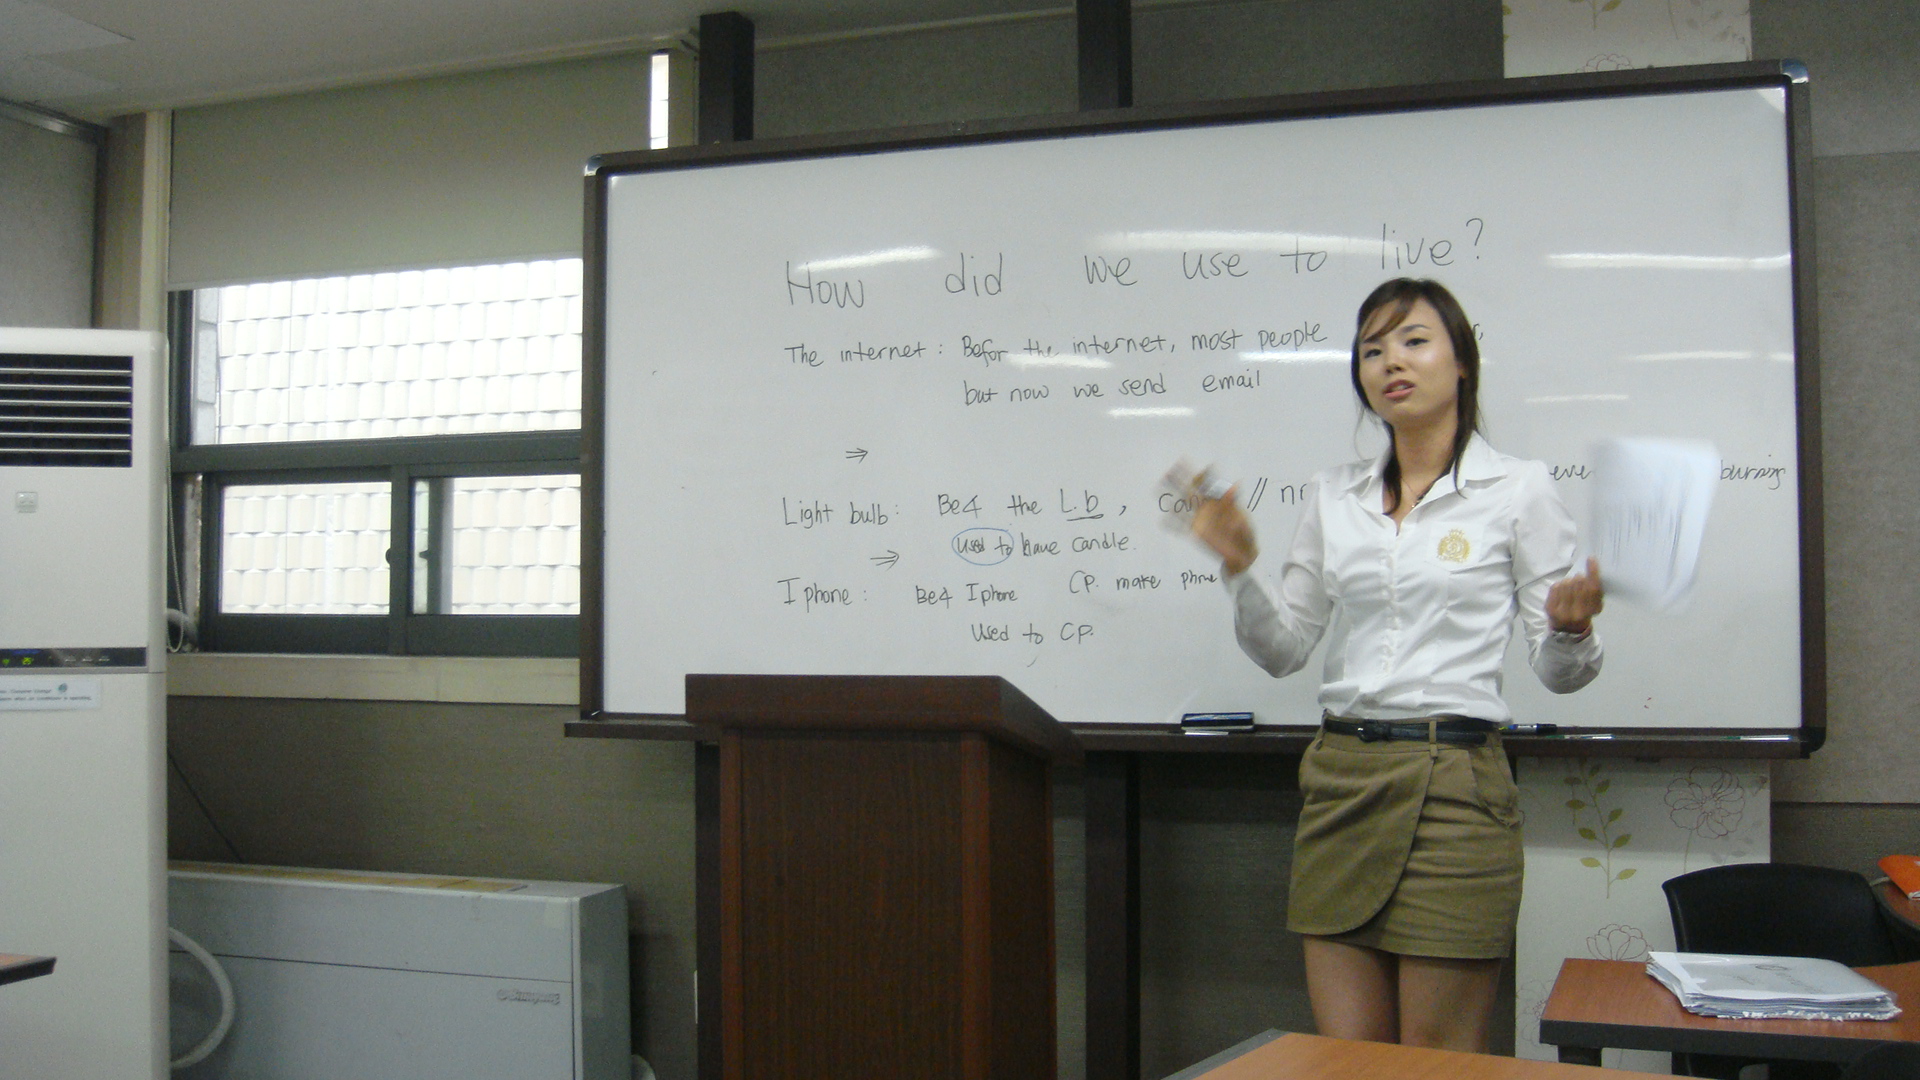 How did we use to live?
The internet: Befor the internet, most people
but now we send email
⇒
Light bulb: Be4 the L.b, // eve burning
⇒ used to have candle.
I phone: Be4 Iphone CP. make phone
Used to CP.